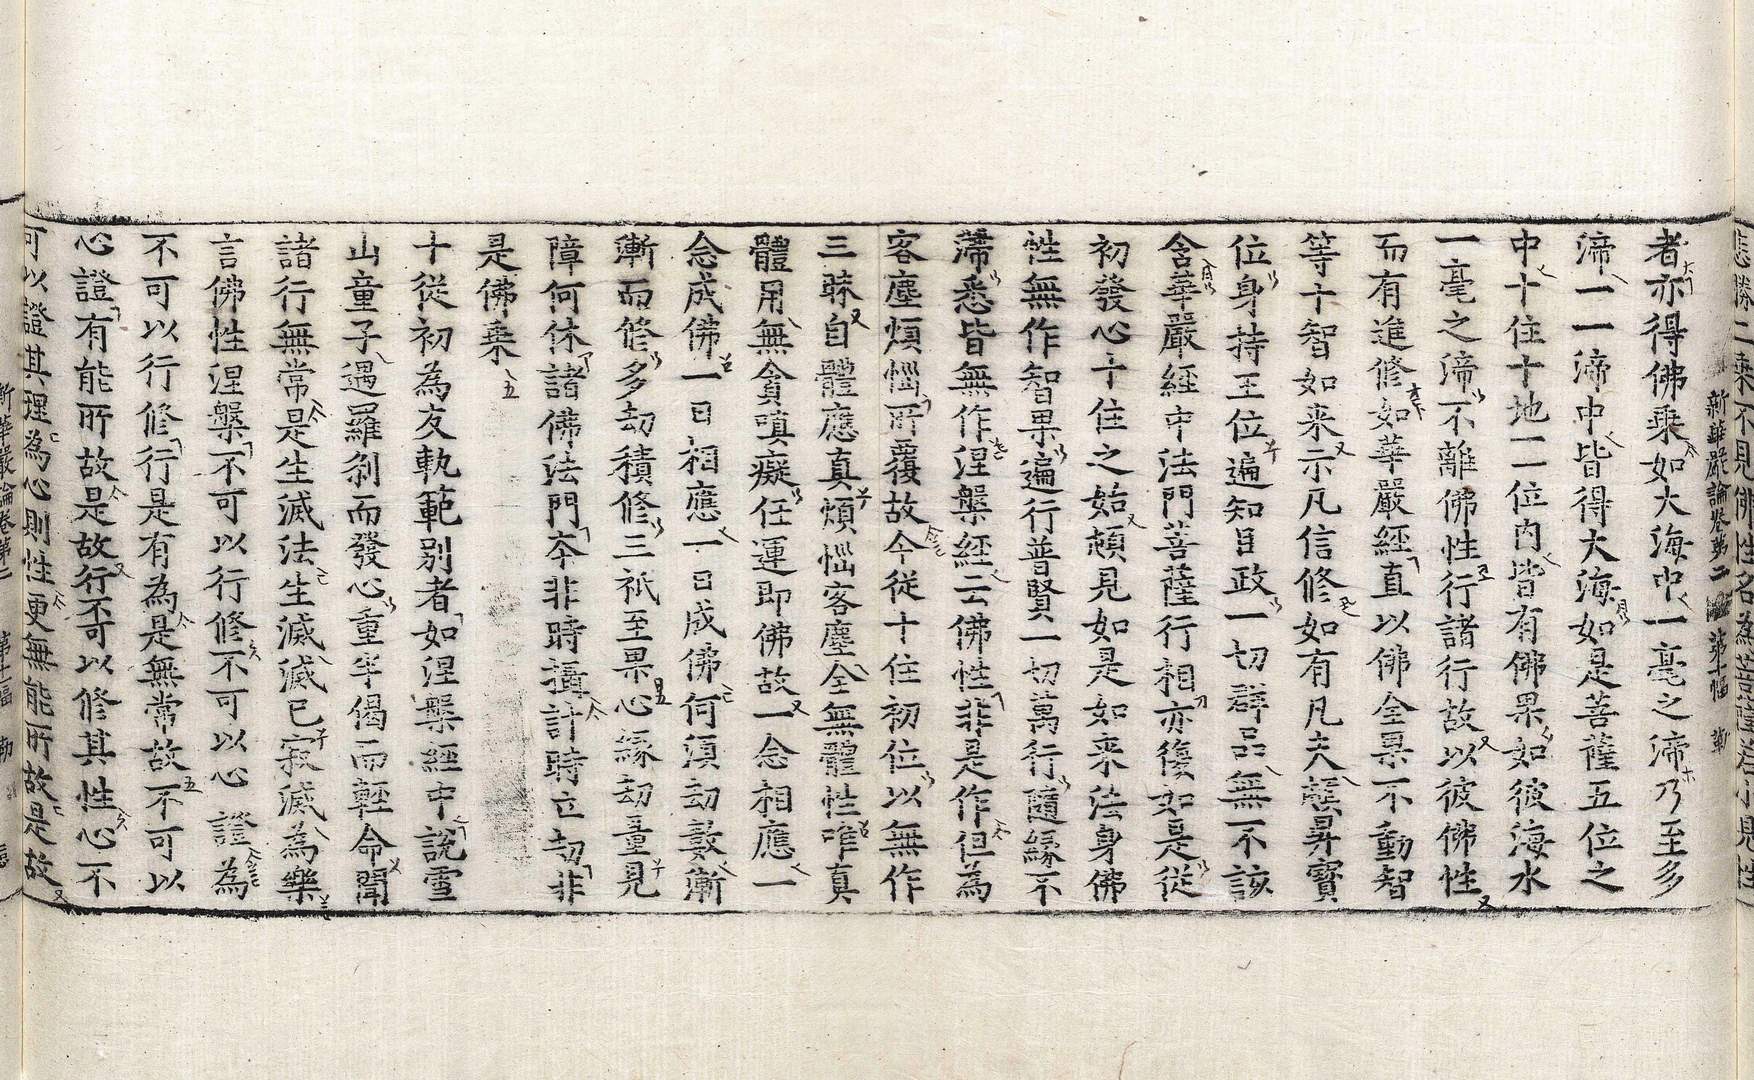 悲勝二乗不見佛性名為菩薩若小見性
新華嚴論卷第二 第十幅 勒
者亦得佛乗如大海中一毫之渧乃至多
渧一一渧中皆得大海如是菩薩五位之
中十住十地一一位内皆有佛果如彼海水
一毫之渧不離佛性行諸行故以彼佛性
而有進修如華嚴經直以佛全果不動智
等十智如来示凡信修如有凡夫頓昇寳
位身持王位遍知目政一切群品無不該
含華嚴經中法門菩薩行相亦復如是從
初發心十住之始頓見如是如来法身佛
性無作智果遍行普賢一切萬行隨緣不
滯悉皆無作涅槃經云佛性非是作但為
客塵煩惱所覆故今從十住初位以無作
三昧自體應真煩惱客塵全無體性唯真
體用無貪嗔癡任運即佛故一念相應一
念成佛一日相應一日成佛何湏劫數漸
漸而修多劫積修三祇至果心緣劫量見
障何休諸佛法門夲非時攝計時立劫非
是佛乗
十從初為友軌範别者如涅槃經中說雪
山童子遇羅剎而發心重半偈而輕命聞
諸行無常是生滅法生滅滅已寂滅為樂
言佛性涅槃不可以行修不可以心證為
不可以行修行是有為是無常故不可以
心證有能所故是故行不可以修其性心不
可以證其理為心則性更無能所故是故
新華嚴論卷第二 第十一幅 勒